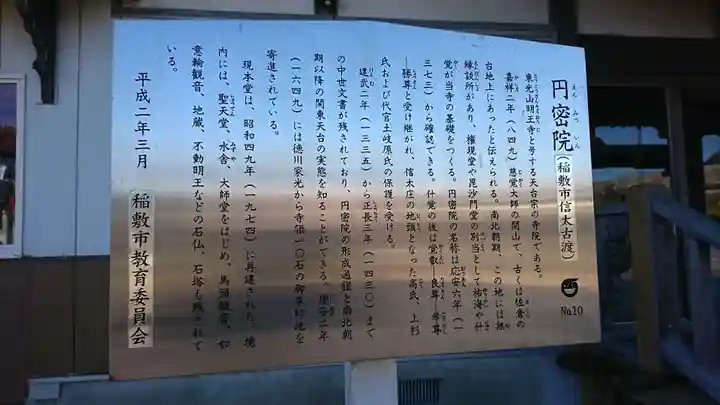 円密院(稲敷市信太古渡)
えんみついん
No.10
東光山明王寺と号する天台宗の寺院である。
嘉祥二年(八四九)慈覚大師の開山で、古くは佐倉の
台地上にあったと伝えられる。南北朝期、この地には熊
野談所があり、権現堂や毘沙門堂の別当として祐海や什
覚が当寺の基礎をつくる。円密院の名称は応安六年(一
三七三)から確認できる。什覚の後は覚叡―良尊―希尊
―勝尊と受け継がれ、信太庄の地頭となった高氏、上杉
氏および代官土岐原氏の保護を受ける。
建武二年(一三三五)から正長三年(一四三〇)まで
の中世文書が残されており、円密院の形成過程と南北朝
期以降の関東天台の実態を知ることができる。慶安二年
(一六四九)には徳川家光から寺領一〇石の御朱印地を
寄進されている。
現本堂は、昭和四九年(一九七四)に再建された。境
内には、聖天堂、水舎、大師堂をはじめ、馬頭観音、如
意輪観音、地蔵、不動明王などの石仏、石塔も残されて
いる。
平成二年三月
稲敷市教育委員会